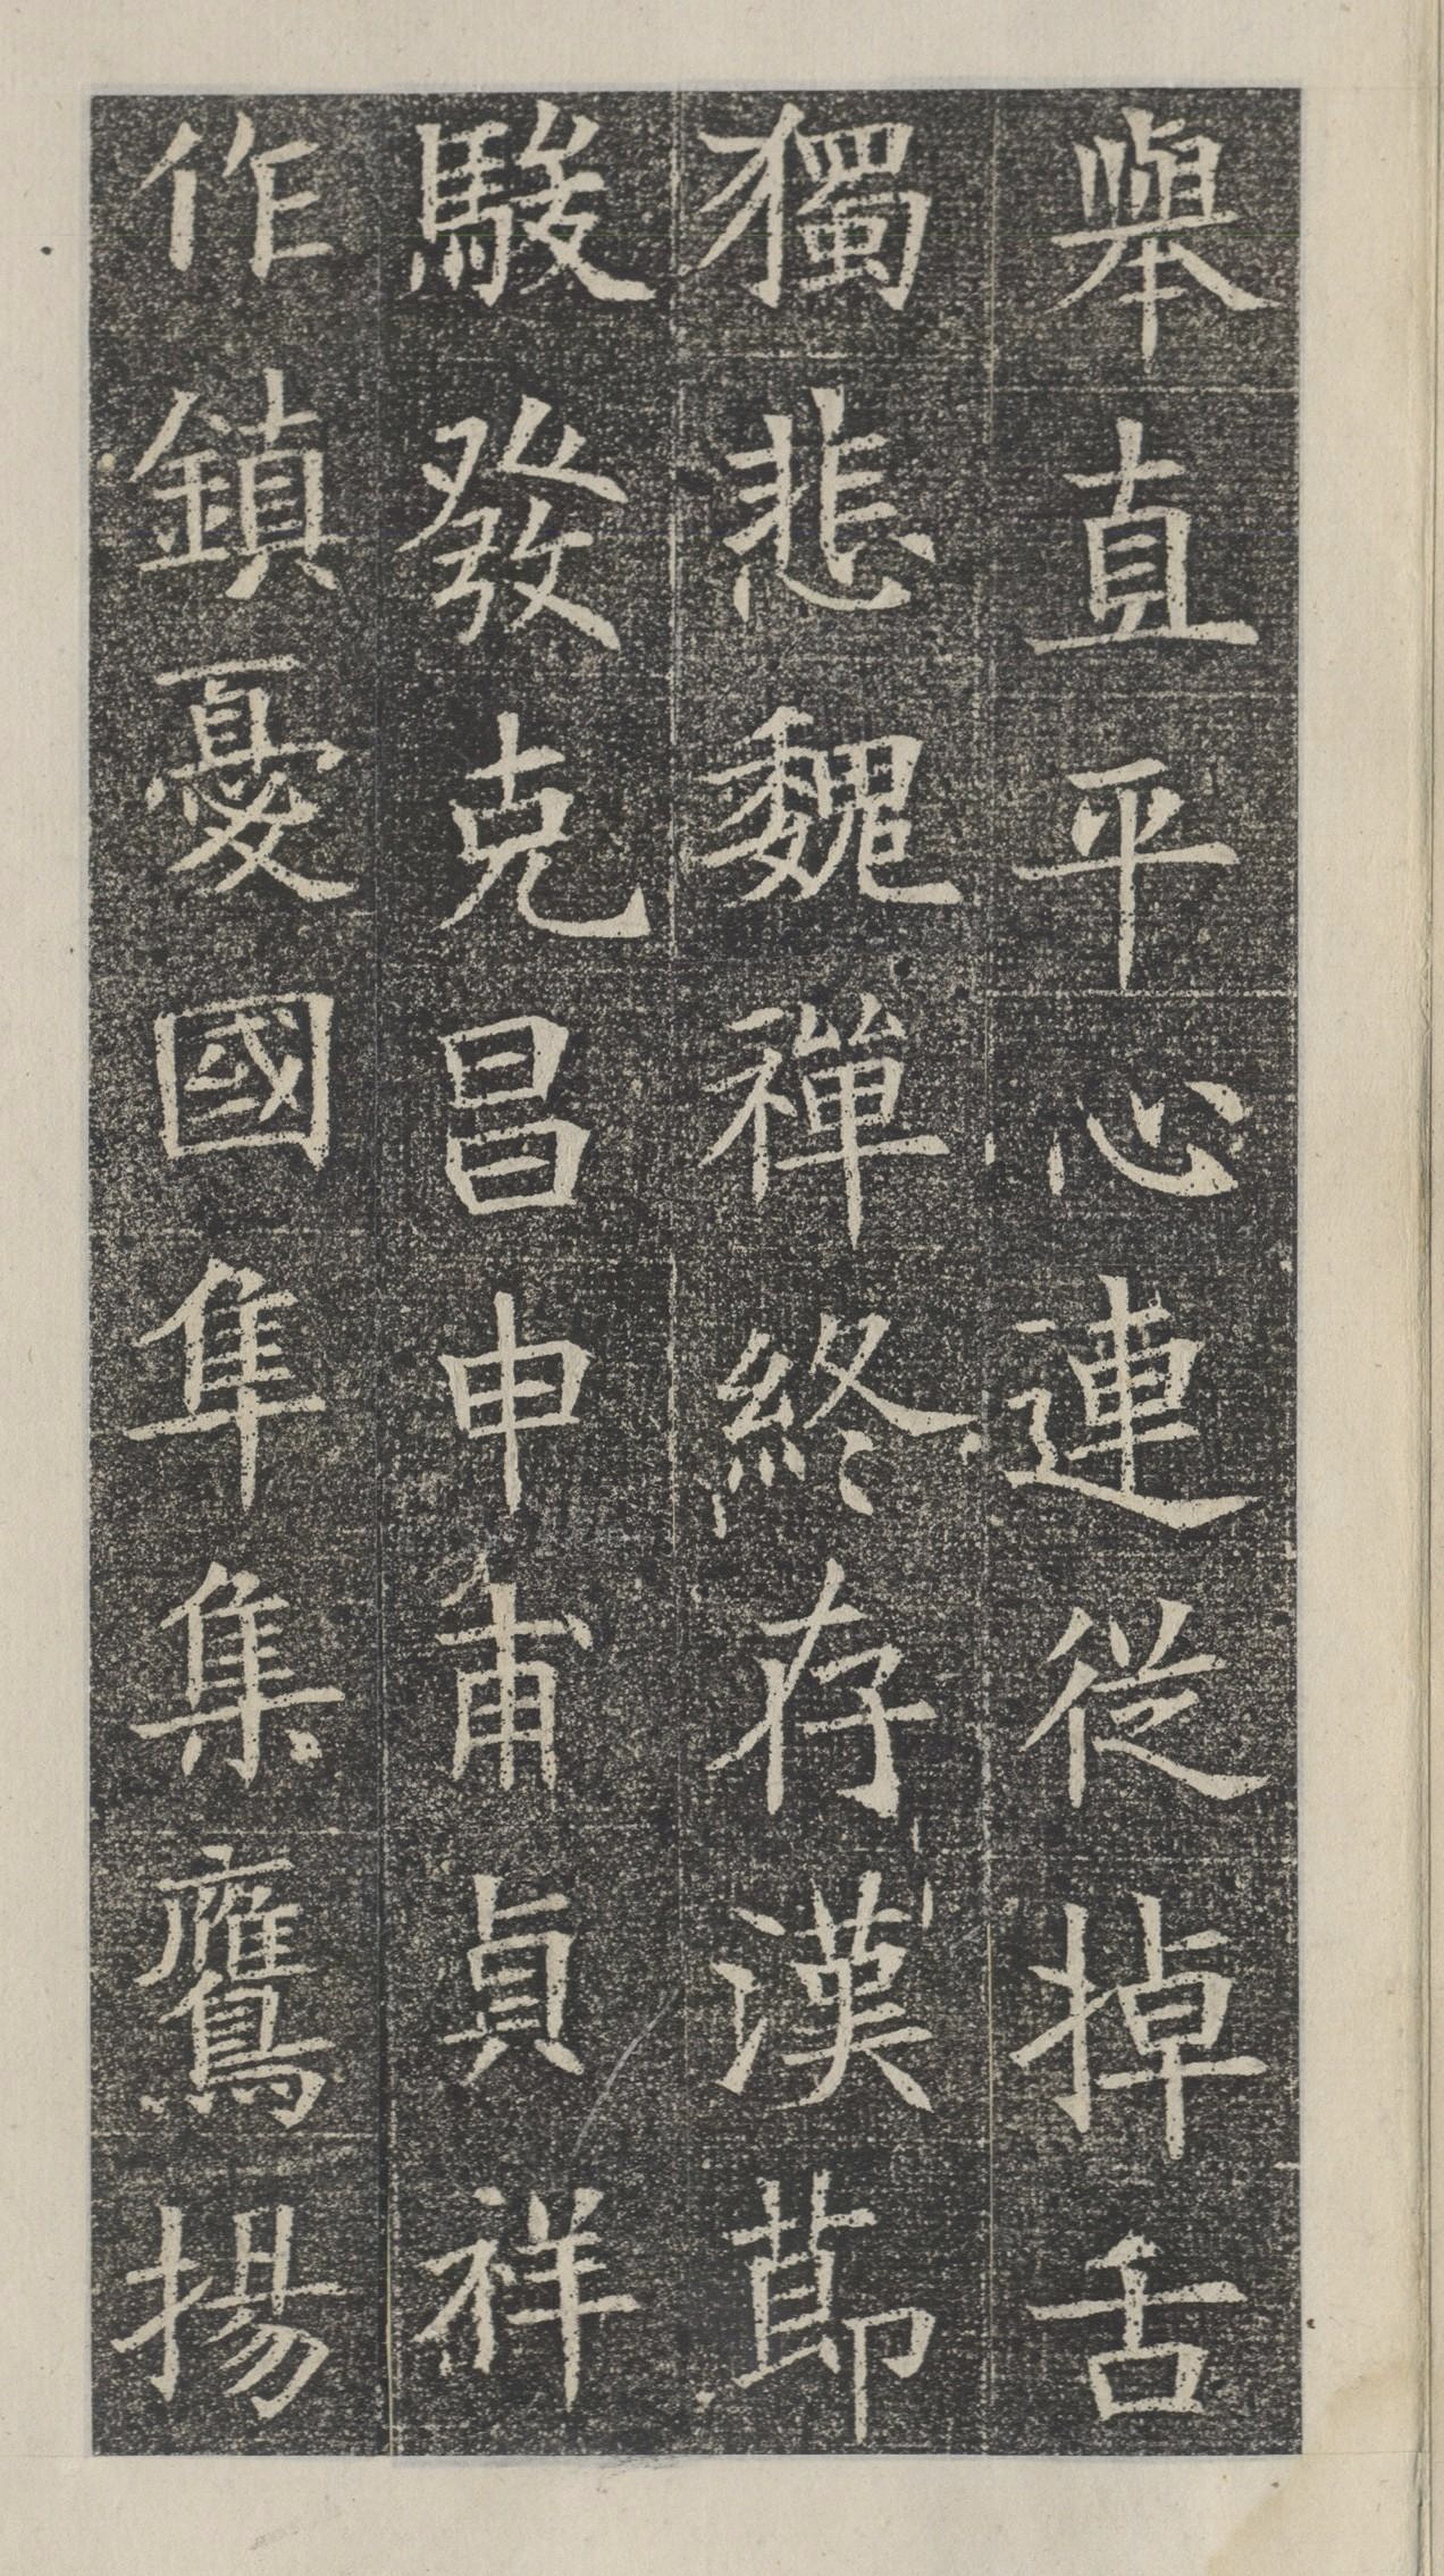 舉直平心連從掉舌
獨悲魏禪終存漢莭
駿發克昌申甫貞祥
作鎮憂國隼集鷹揚